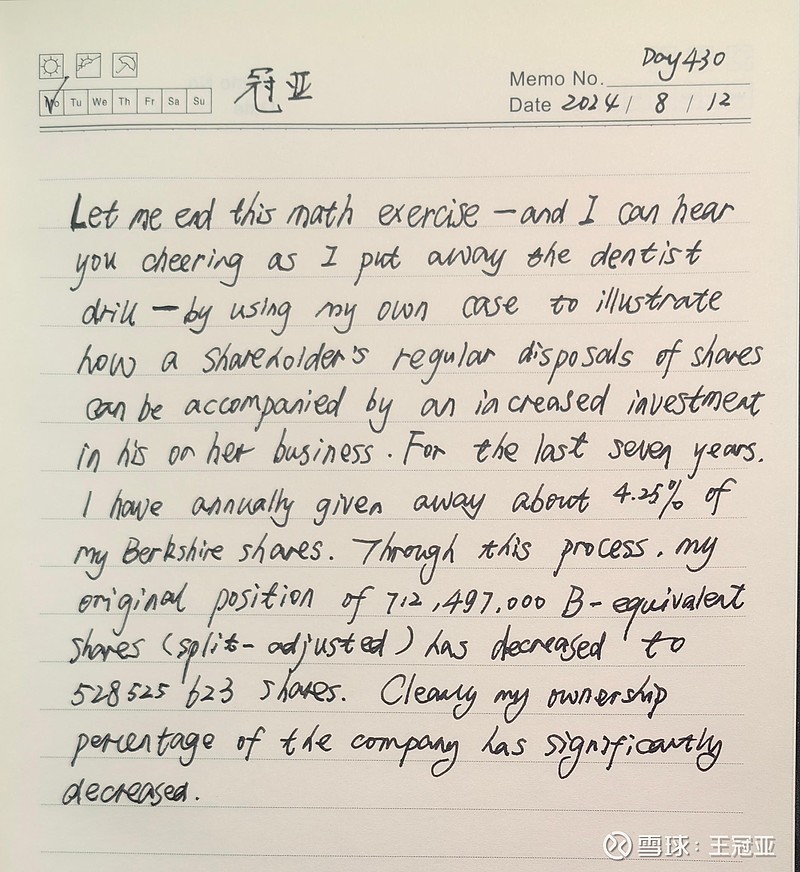 Day 430
冠亚
Memo No.
Mo Tu We Th Fr Sa Su
Date 2024 / 8 / 12
Let me end this math exercise — and I can hear
you cheering as I put away the dentist
drill — by using my own case to illustrate
how a shareholder's regular disposals of shares
can be accompanied by an increased investment
in his or her business. For the last seven years.
I have annually given away about 4.25% of
my Berkshire shares. Through this process, my
original position of 712,497,000 B-equivalent
shares (split-adjusted) has decreased to
528525 623 shares. Clearly my ownership
percentage of the company has significantly
decreased.
雪球：王冠亚